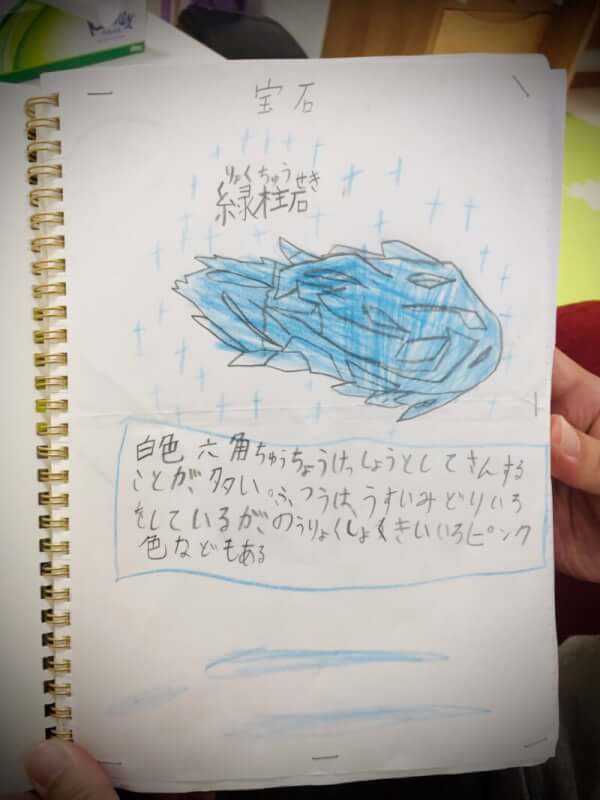 宝石
りょくちゅうせき
緑柱石
白色 六角ちゅうちょうけっしょうとしてさんする
ことが、多い。ふつうは、うすいみどりいろ
をしているが、のうりょくしょくきいいろピンク
色などもある